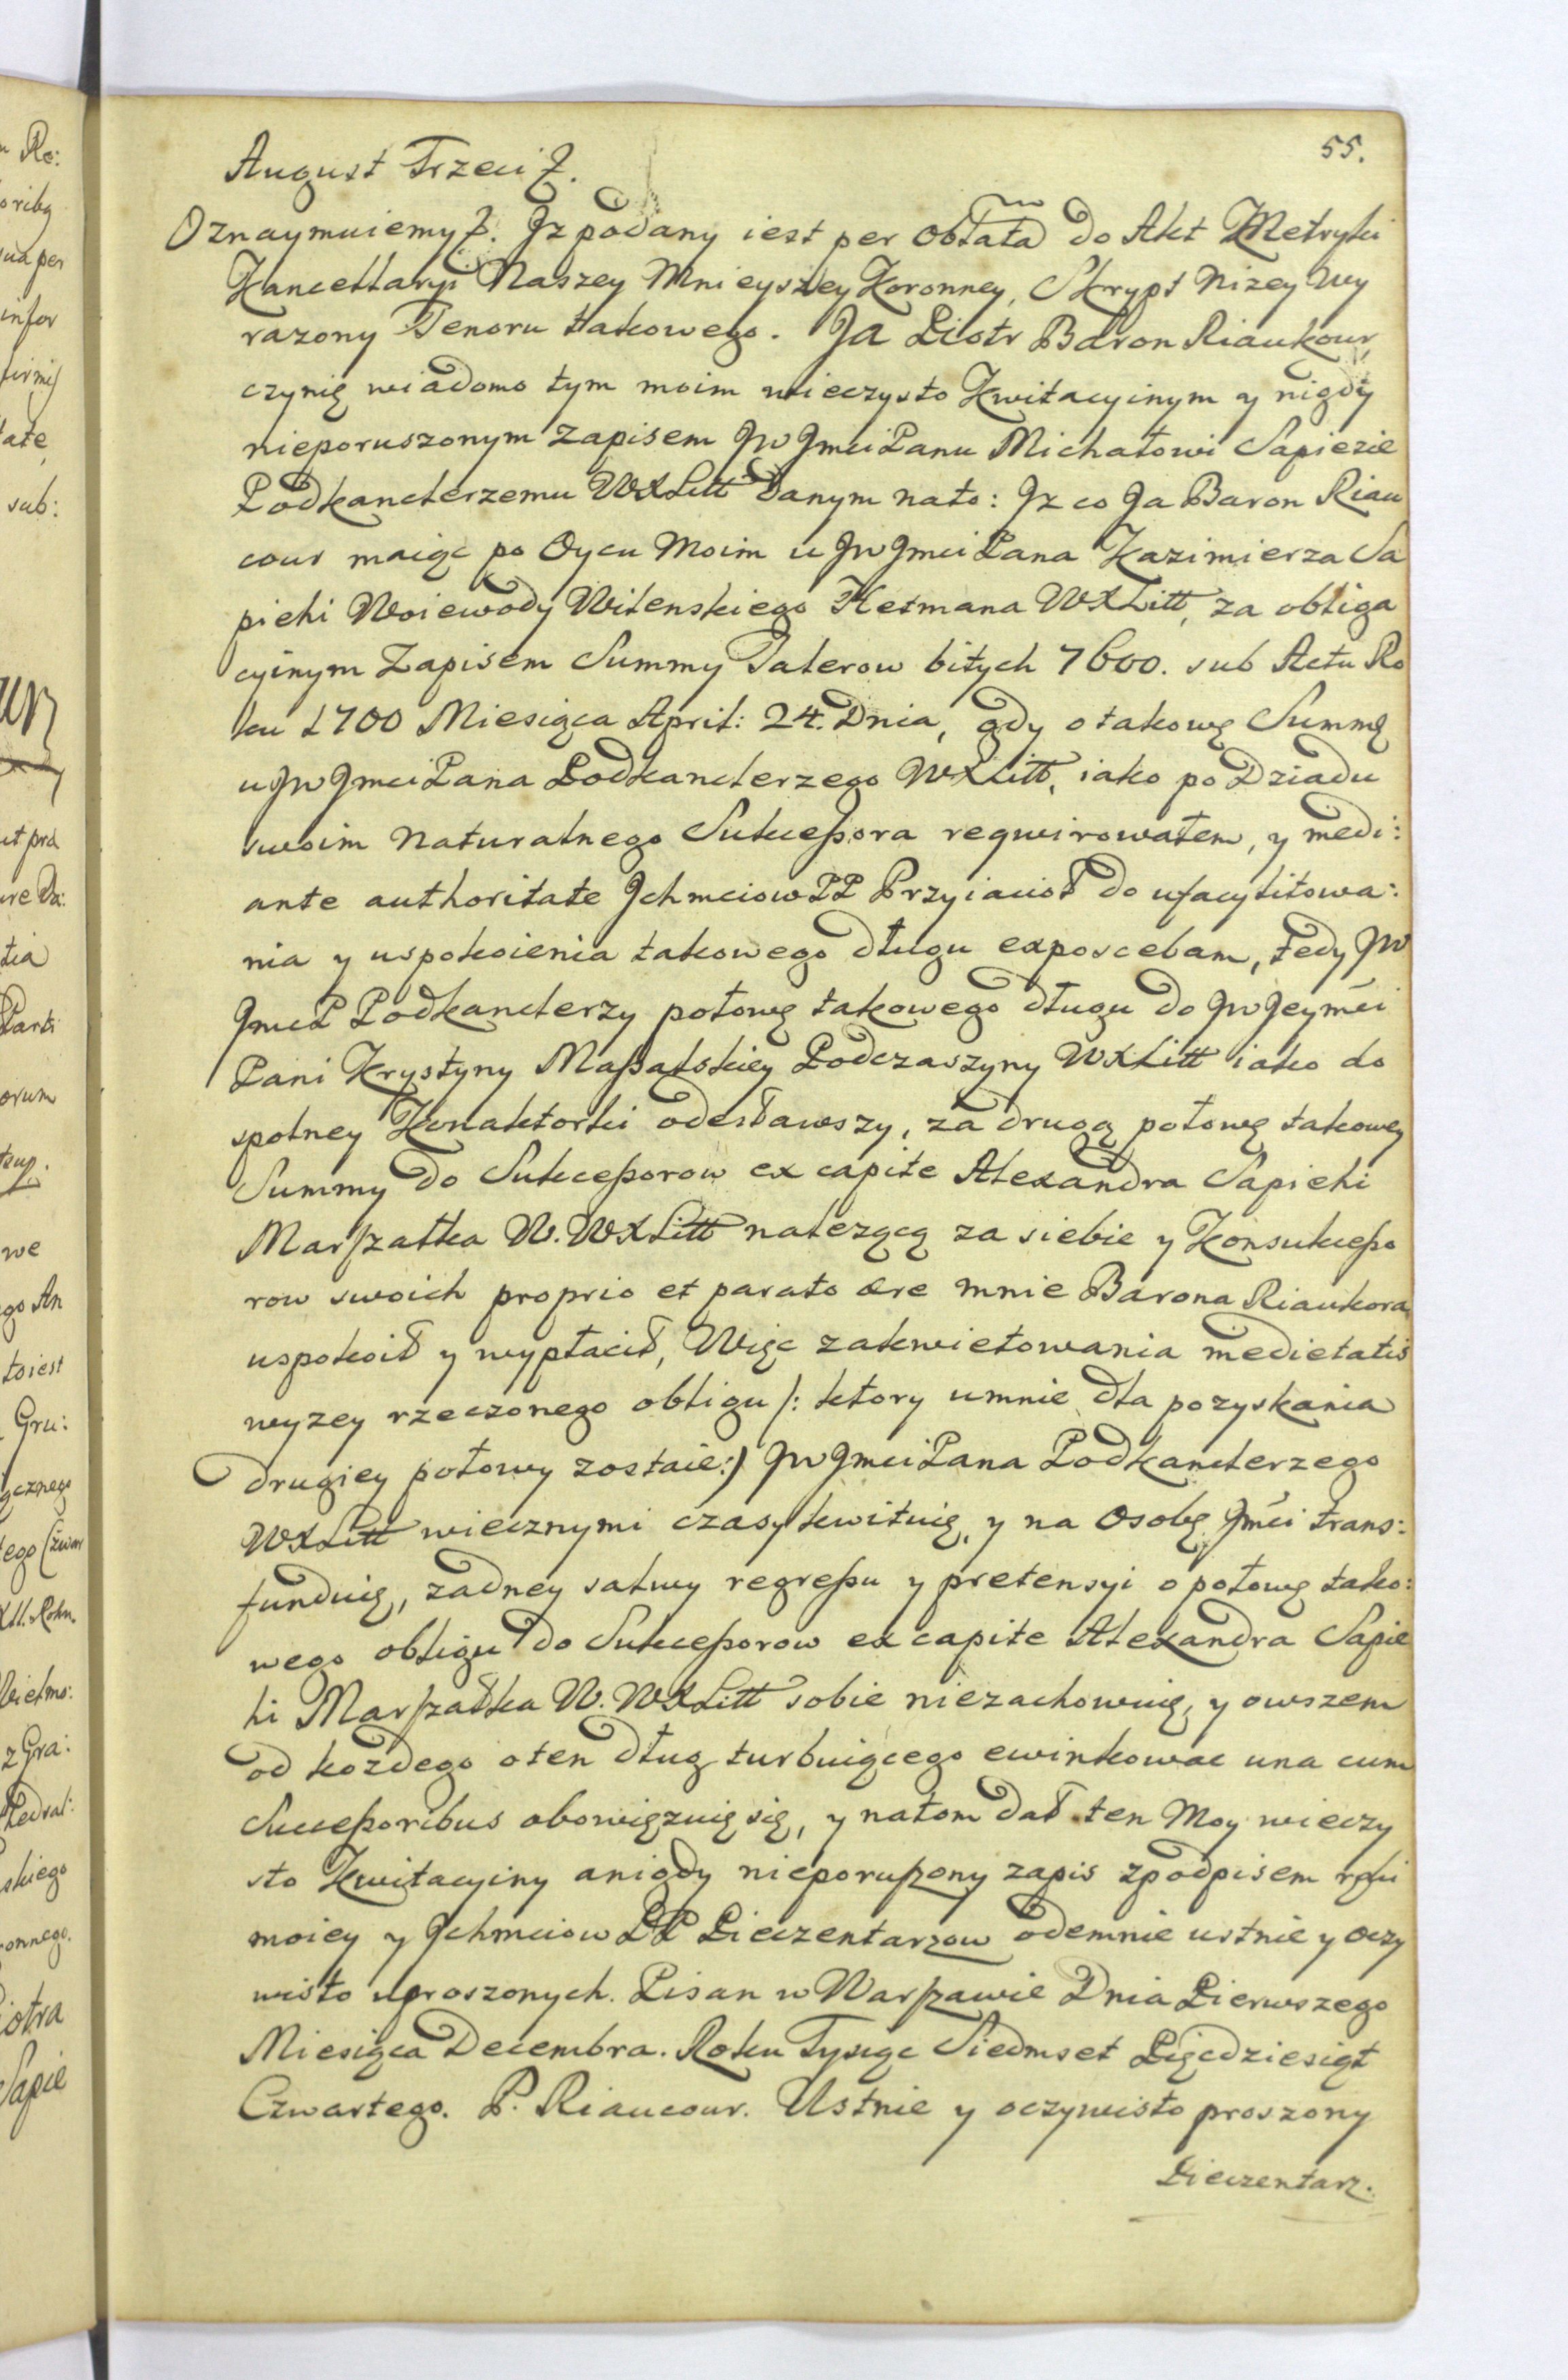 55.
August Trzeci &.
Oznaymuiemy &. Jz podany iest per Obłatã do Akt Metryki
Kancellaryi Naszey Mnieyszey Koronney, Skrypt Nizey Wy
razony Tenoru takowego. Ja Piotr Baron Riaukour,
czynię wiadomo tym moim wieczysto Kwitacyinym y nigdy
nieporuszonym zapisem JW Jmci Panu Michałowi Sapiezie
Podkanclerzemu WXLitt danym nato: Jz co Ja Baron Riau
cour maiąc po Oycu Moim u JW Jmci Pana Kazimierza Sa
piehi Woiewody Wilenskiego Hetmana WXLitt, za obliga
cyinym Zapisem Summy Talerow bitych 7600. sub Actu Ro
ku 1700 Miesiąca April: 24. Dnia, gdy o takowę Summę
u JW Jmci Pana Podkanclerzego WXLitt, iako po Dziadu
swoim Naturalnego Sukceßora reqwirowałem, y medi:
ante authoritate Jchmciow PP Przyiacioł do ufacylitowa:
nia y uspokoienia takowego długu exposcebam, tedy JW
Jmc P Podkanclerzy połowę takowego długu do JW Jeymći
Pani Krystyny Maßalskiey Podczaszyny WXLitt iako do
spolney Konaktorki odesławszy, za drugą połowę takowey
Summy do Sukceßorow ex capite Alexandra Sapiehi
Marszałka W. WXLitt nalezącą za siebie y Konsukceßo
row swoich proprio et parato ære mnie Barona Riaukora
uspokoił y wypłacił, Więc zakwietowania medietatis
wyzey rzeczonego obligu /: ktory umnie dla pozyskania
drugiey połowy zostaie:/ JW Jmci Pana Podkanclerzego
WXLitt wiecznymi czasy kwituię, y na Osobę Jmći trans:
funduię, zadney salwy regreßu y pretensyi o połowę tako:
wego obligu do Sukceßorow ex capite Alexandra Sapie
hi Marszałka W. WXLitt sobie niezachowuię, y owszem
od kozdego oten dług turbuiącego ewinkowac una cum
Succeßoribus obowięzuię się, y natom dał ten Moy wieczy
sto Kwitacyiny anigdy nieporuszony zapis zpodpisem ręki
moiey y Jchmciow PP Pieczentarzow odemnie ustnie y oczy
wisto uproszonych. Pisan w Warszawie Dnia Pierwszego
Miesiąca Decembra. Roku Tysiąc Siedmset Pięcdziesiąt
Czwartego. P. Riaucour. Ustnie y oczywisto proszony
Pieczentarz.